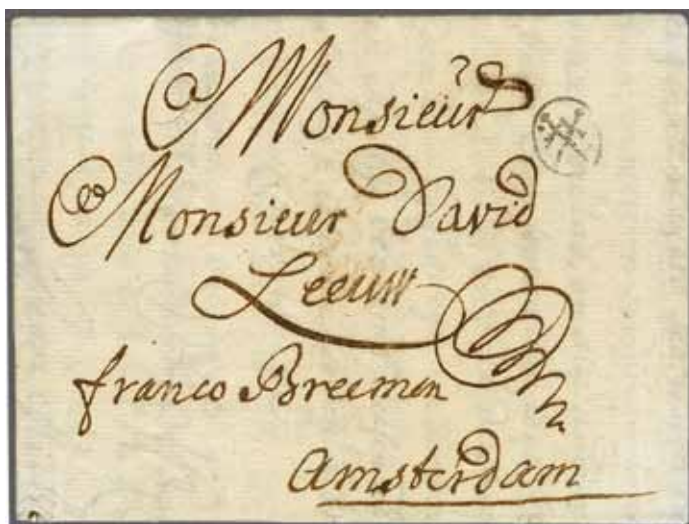 Monsieur
Monsieur David
Leeuw
franco Breemen
Amsterdam